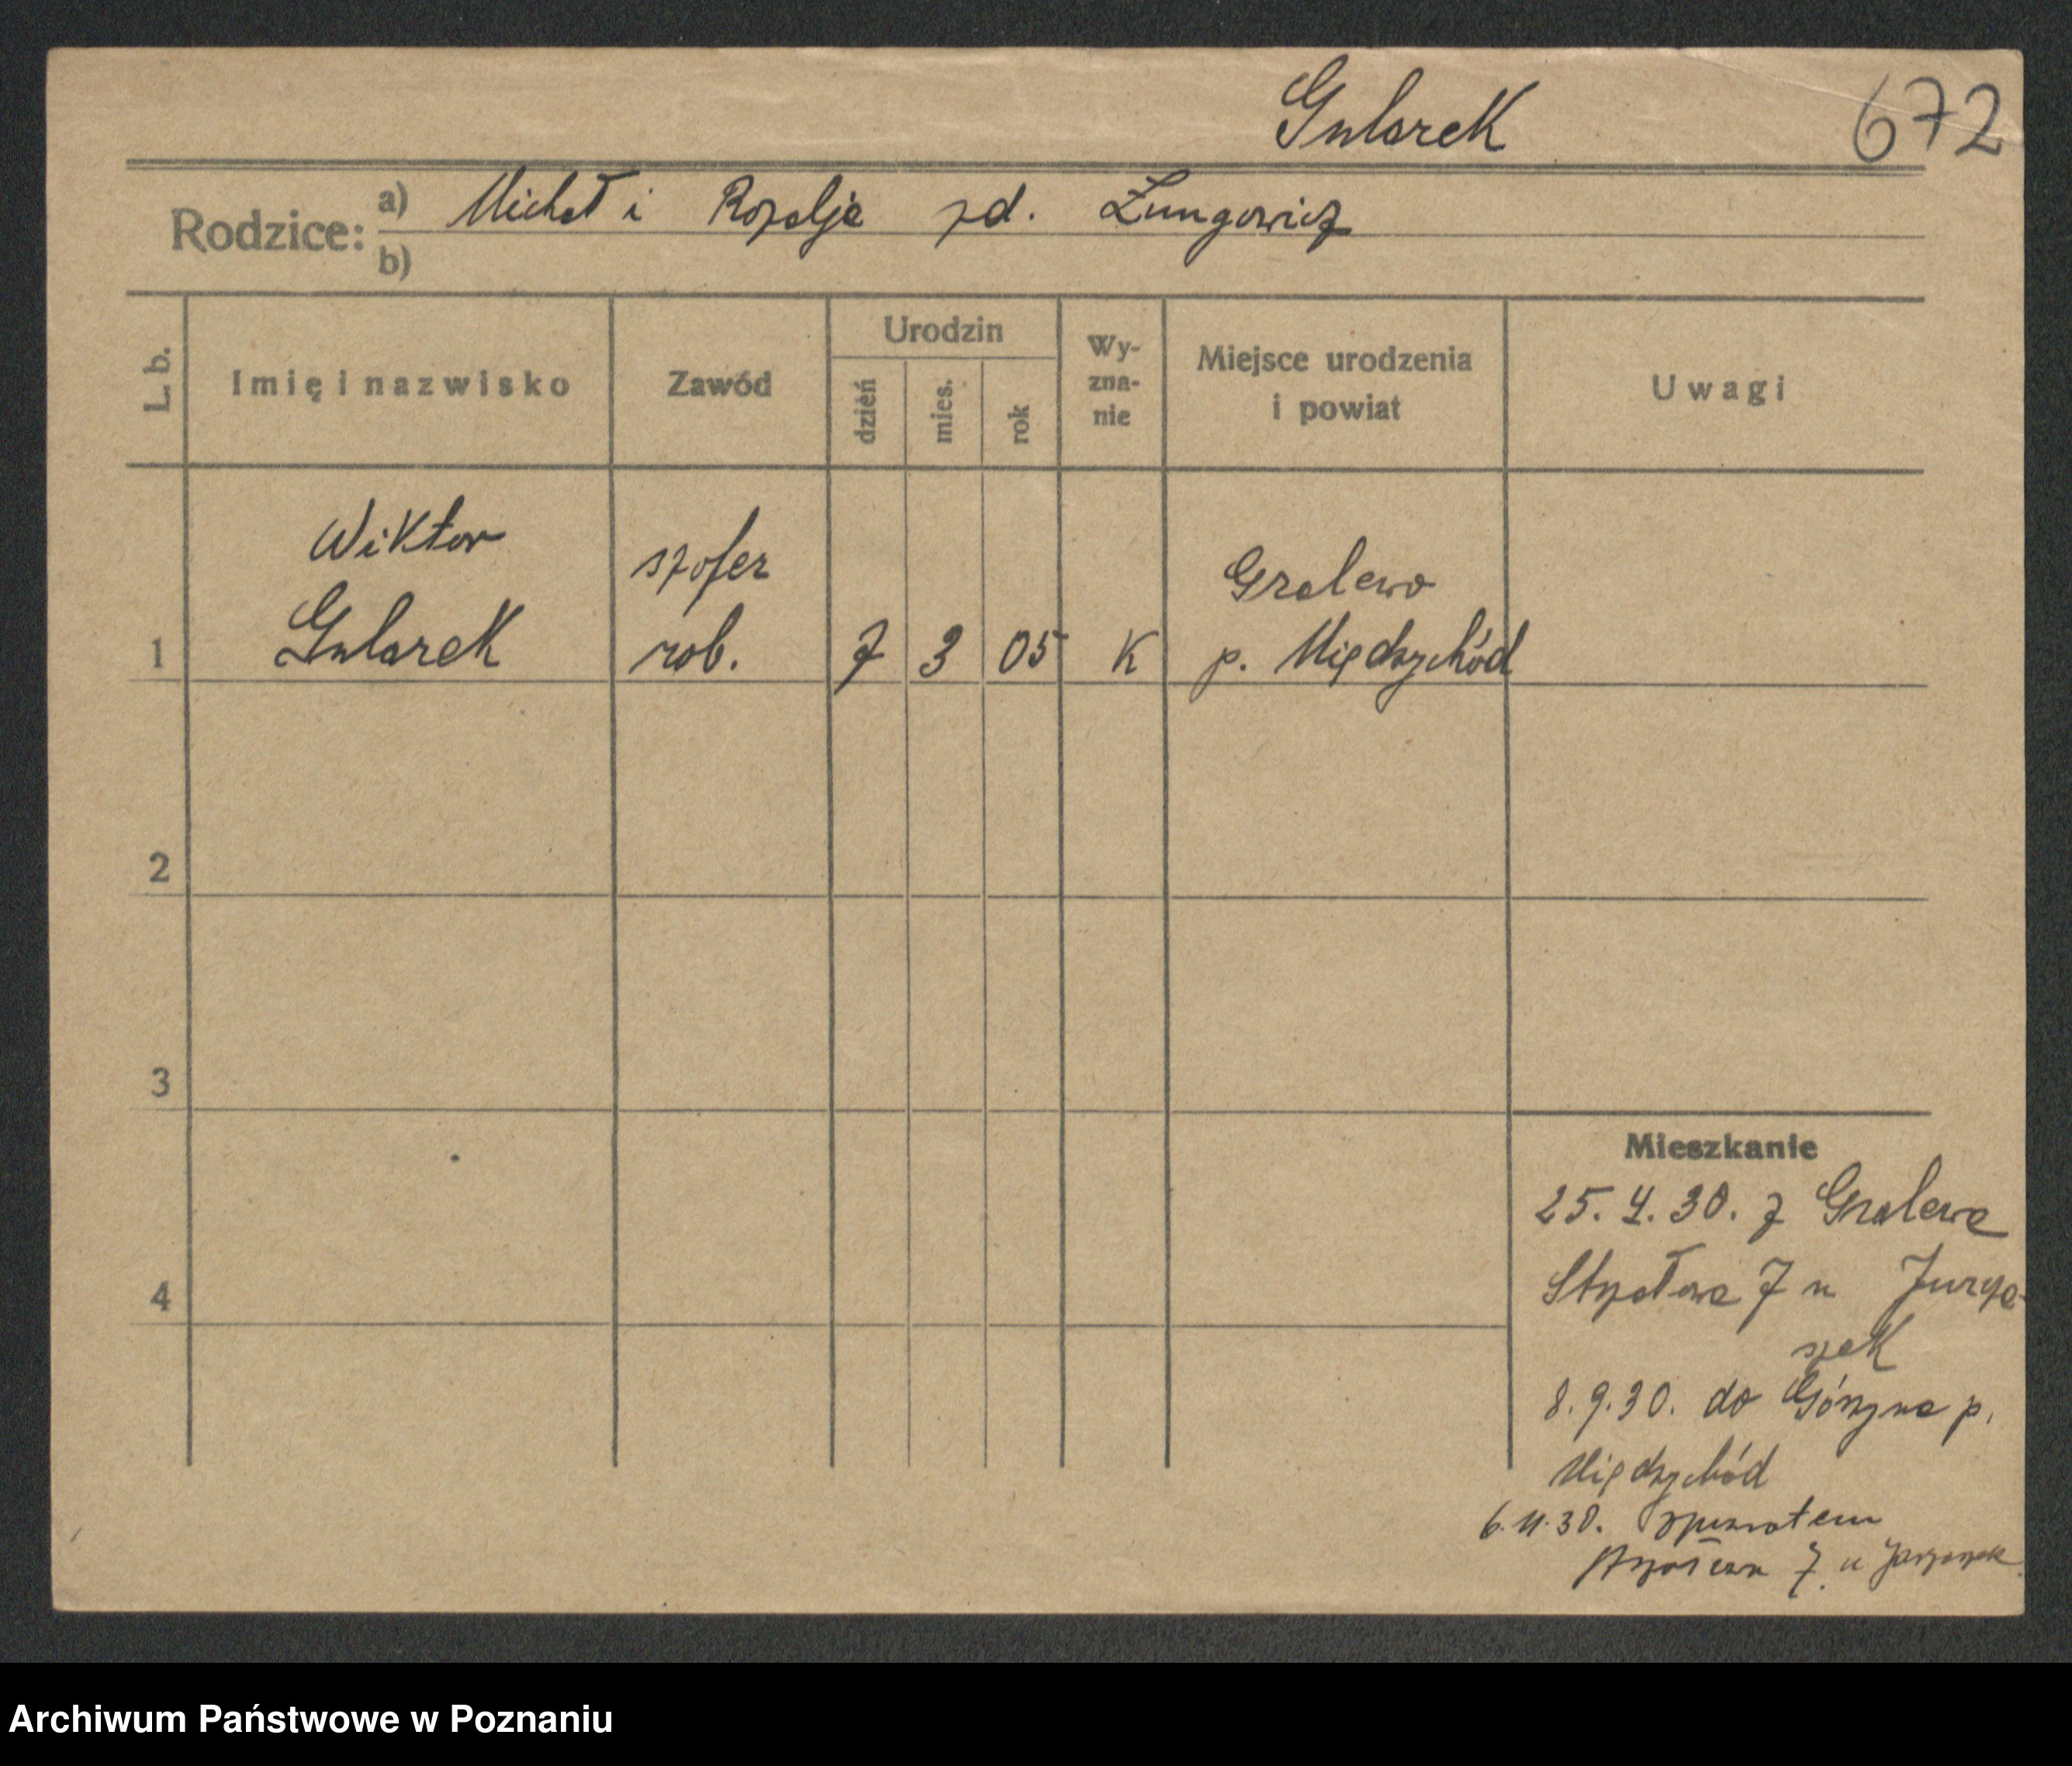 Gularek 672
Rodzice: a) Michał i Rozalja zd. Żungowicz
b)
L. b. Imię i nazwisko Zawód Urodzin dzień mies. rok Wy-zna-nie Miejsce urodzenia i powiat Uwagi
Wiktor szofer Gralewo
1 Gularek rob. 7 3 05 K p. Międzychód
2
3
Mieszkanie
25. 4. 30. z Gralewa
4 7 u
8. 9. 30. do p.
Międzychód
6. 11. 30. spowrotem
7 u
Archiwum Państwowe w Poznaniu